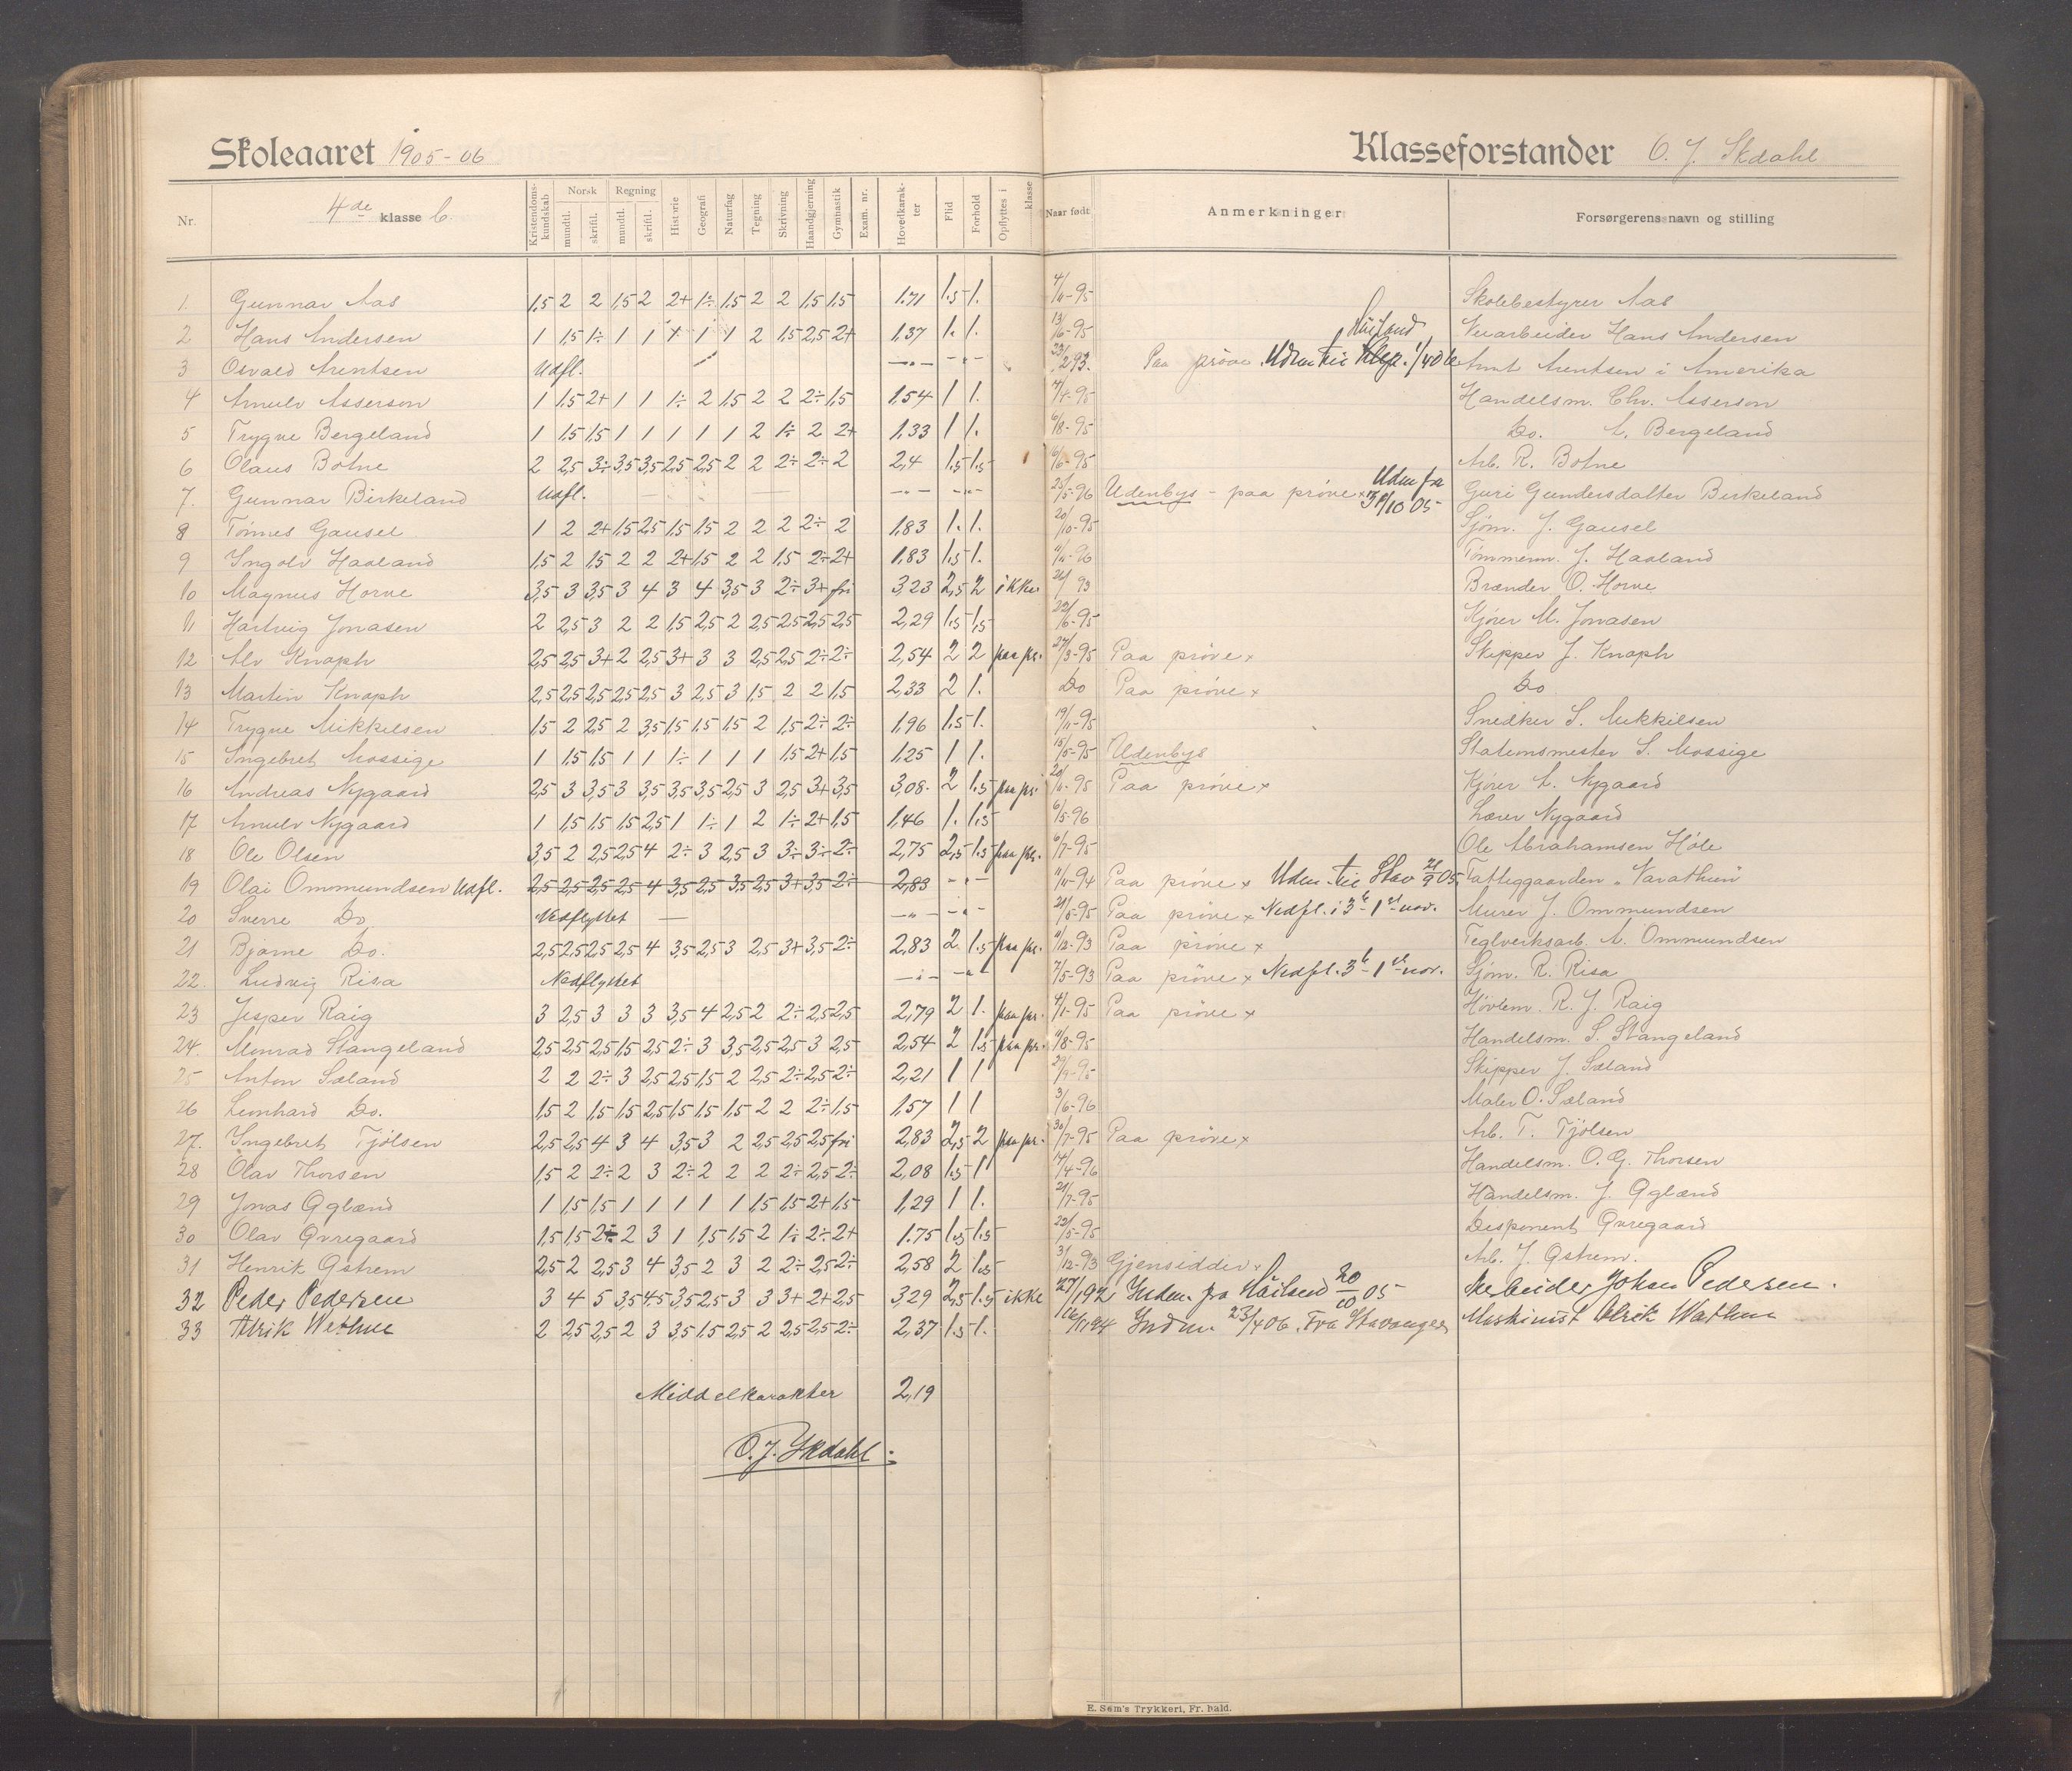 Skoleaaret 1905-06
Klasseforstander O. J. Skdahl
Nr. 4de klasse C. Kristendoms-kundskab Norsk mundtl. skriftl. Regning mundtl. skriftl. Historie Geografi Naturfag Tegning Skrivning Haandgjerning Gymnastik Exam. nr. Hovedkarak-ter Flid Forhold Opflyttes i klasse Naar født Anmerkninger Forsørgerens navn og stilling
1. Gunnar Aas 1,5 2 2 1,5 2 2+ 1÷ 1,5 2 2 1,5 1,5 1.71 1.5 1. 4/11-95 Skolebestyrer Aas
2 Hans Andersen 1 1,5 1÷ 1 1 1 1 2 1,5 2,5 2+ 1,37 1. 1. 13/6-95 Hans Andersen
3 Osvald Arentsen Udfl. Paa prøve Udm. til Haaland 1/4 06 Arnt Arentsen i Amerika
4 Arnulv Asserson 1 1,5 2+ 1 1 1÷ 2 1,5 2 2 2÷ 1,5 1,54 1 1. 14/4-95 Handelsm. Chr. Asserson
5 Trygve Bergeland 1 1,5 1,5 1 1 1 1 1 2 1÷ 2 2+ 1,33 1 1. 6/8-95 Do. A. Bergeland
6 Olaus Botne 2 2,5 3÷ 3,5 3,5 2,5 2,5 2 2 2÷ 2÷ 2 2,4 1.5 1.5 16/6-95 Arb. R. Botne
7. Gunnar Birkeland Udfl. 25/5-96 Udenbys - paa prøve x Udm fra 31/10 05 Guri Gundersdatter Birkeland
8 Tønnes Gausel 1 2 2+ 1,5 2,5 1,5 1,5 2 2 2 2÷ 2 1,83 1. 1. 20/10-95 Sjøm. J. Gausel
9 Ingolv Haaland 1,5 2 1,5 2 2 2+ 1,5 2 2 1,5 2÷ 2+ 1,83 1.5 1. Tømmerm. J. Haaland
10 Magnus Horve 3,5 3 3,5 3 4 3 4 3,5 3 2÷ 3+ fri 3,23 2,5 2 ikke Brænder O. Horve
11 Hartvig Jonasen 2 2,5 3 2 2 1,5 2,5 2 2,5 2,5 2,5 2,5 2,29 1.5 1,5 22/6-95 Kjører M. Jonasen
12 Alv Knaph 2,5 2,5 3+ 2 2,5 3+ 3 3 2,5 2,5 2÷ 2÷ 2,54 2 2 paa pr. 27/3-95 Paa prøve x Skipper J. Knaph
13 Martin Knaph 2,5 2,5 2,5 2,5 2,5 3 2,5 3 1,5 2 2 1,5 2,33 2 1. Do Paa prøve x Do
14 Trygve Mikkelsen 1,5 2 2,5 2 3,5 1,5 1,5 1,5 2 1,5 2÷ 2÷ 1,96 1.5 1. 19/11-95 Snedker S. Mikkelsen
15 Ingebret Mossige 1 1,5 1,5 1 1 1÷ 1 1 1 1,5 2+ 1,5 1,25 1 1. 15/5-95 Udenbys Stationsmester S. Mossige
16 Andreas Nygaard 2,5 3 3,5 3 3,5 3,5 3,5 2,5 3 2,5 3+ 3,5 3,08. 2 1.5 paa pr. 20/11-95 Paa prøve x Kjører A. Nygaard
17 Arnulv Nygaard 1 1,5 1,5 1,5 2,5 1 1÷ 1 2 1÷ 2+ 1,5 1,46 1. 1.5 6/5-96 Lærer Nygaard
18 Ole Olsen 3,5 2 2,5 2,5 4 2÷ 3 2,5 3 3÷ 3÷ 2÷ 2,75 2,5 1.5 paa pr. 6/7-95 Ole Abrahamsen Høle
19 Olai Ommundsen Udfl. 2,5 2,5 2,5 2,5 4 3,5 2,5 3,5 2,5 3+ 3,5 2÷ 2,83 11/11-94 Paa prøve x Udm. til Stav 21/9 05 Fattiggaarden "Varathun"
20 Sverre Do Nedflyttet 21/5-95 Paa prøve x Nedfl. i 3de 1ste nov. Murer J. Ommundsen
21 Bjarne Do. 2,5 2,5 2,5 2,5 4 3,5 2,5 3 2,5 3+ 3,5 2÷ 2,83 2 1.5 paa pr. 11/12-93 Paa prøve x Teglverksarb. A. Ommundsen
22. Ludvig Risa Nedflyttet 7/5-93 Paa prøve x Nedfl. 3de 1ste nov. Sjøm. R. Risa
23 Jesper Raig 3 2,5 3 3 3 3,5 4 2,5 2 2÷ 2,5 2,5 2,79 2 1. paa pr. 4/1-95 Paa prøve x Høvlem. R. J. Raig
24. Monrad Stangeland 2,5 2,5 2,5 1,5 2,5 2÷ 3 3,5 2,5 2,5 3 2,5 2,54 2 1.5 paa pr. 11/8-95 Handelsm. S. Stangeland
25 Anton Sæland 2 2 2÷ 3 2,5 2,5 1,5 2 2,5 2÷ 2,5 2÷ 2,21 1 1 29/9-95 Skipper J. Sæland
26 Leonhard Do. 1,5 2 1,5 1,5 2,5 1,5 1,5 1,5 2 2 2÷ 1,5 1,57 1 1 3/6-96 Maler O. Sæland
27. Ingebret Tjølsen 2,5 2,5 4 3 4 3,5 3 2 2,5 2,5 2,5 fri 2,83 2,5 2 paa pr. 30/7-95 Paa prøve x Arb. T. Tjølsen
28 Olav Thorsen 1,5 2 2÷ 2 3 2÷ 2 2 2 2÷ 2,5 2÷ 2,08 1.5 1 14/4-96 Handelsm. O. G. Thorsen
29 Jonas Øglænd 1 1,5 1,5 1 1 1 1 1 1,5 1,5 2+ 1,5 1,29 1 1. 21/7-95 Handelsm. J. Øglænd
30 Olav Øvregaard 1,5 1,5 2÷ 2 3 1 1,5 1,5 2 1÷ 2÷ 2+ 1.75 1.5 1.5 22/5-95 Disponent Øvregaard
31 Henrik Østrem 2,5 2 2,5 3 4 3,5 2 3 2 2÷ 2,5 2÷ 2,58 2 1.5 3/12-93 Gjensidder x Arb. J. Østrem.
32 Peder Pedersen 3 4 5 3,5 4,5 3,5 2,5 3 3 3+ 2+ 2,5 3,29 2,5 1.5 ikke 27/1 92 Indm. fra Haaland 20/10 05 Johan Pedersen.
33 Alrik Wathne 2 2,5 2,5 2 3 3,5 1,5 2,5 2 2,5 2,5 2÷ 2,37 1.5 1. 16/11 94 Indm. 23/4 06. Fra Stavanger Maskinist Alrik Wathne
Middelkarakter 2,19
O. J. Skdahl
E. Søm's Trykkeri, Fr. hald.